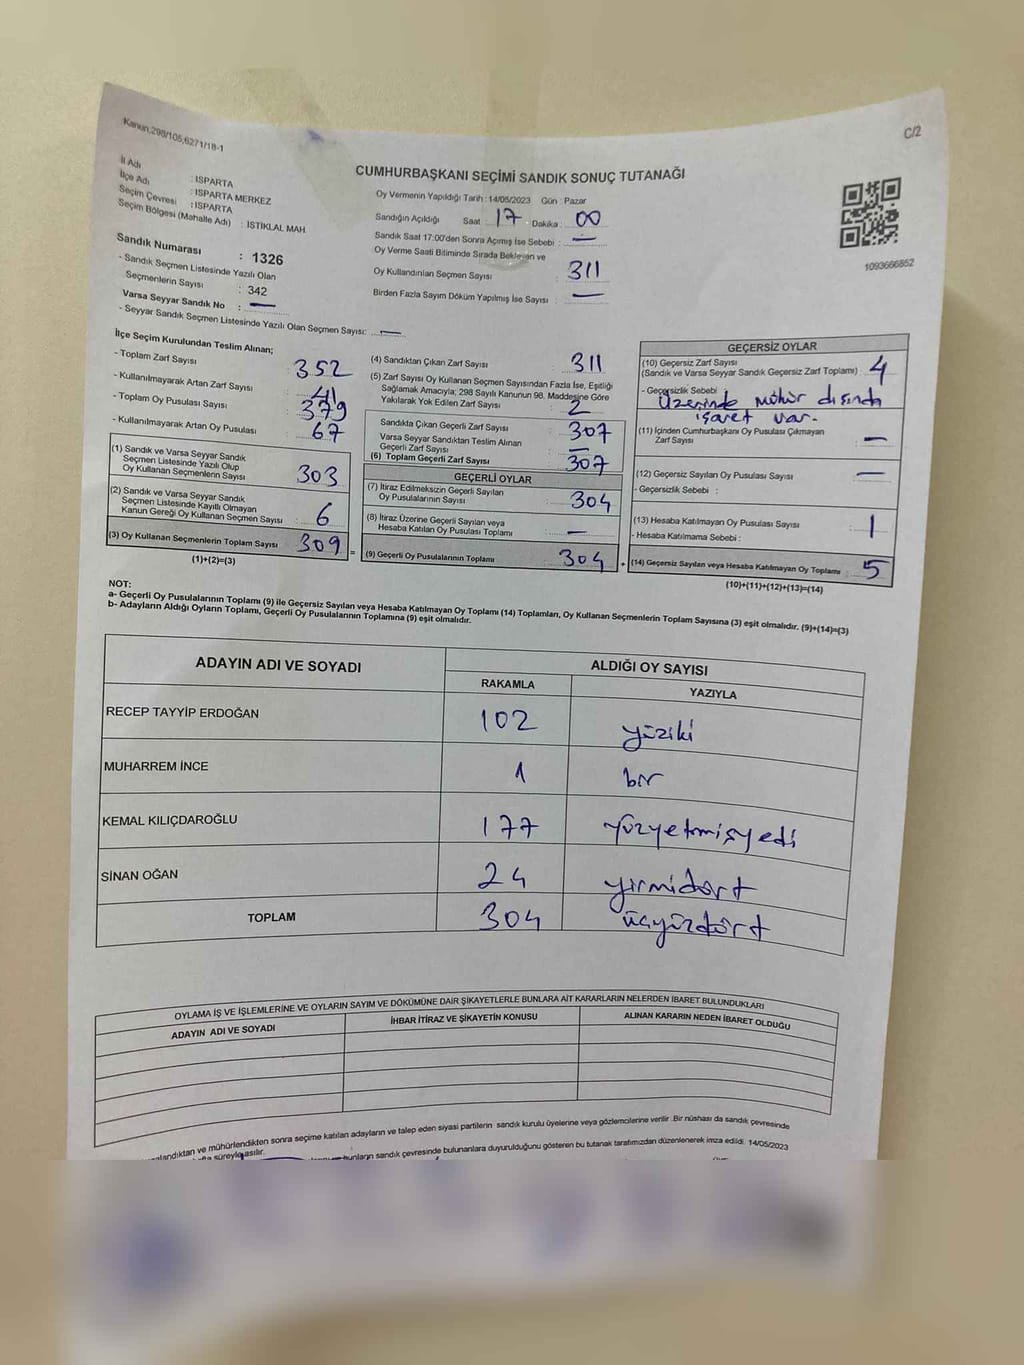 Kanun,298/105,6271/18-1
C/2
İl Adı : ISPARTA
İlçe Adı : ISPARTA MERKEZ
Seçim Çevresi : ISPARTA
Seçim Bölgesi (Mahalle Adı) : ISTIKLAL MAH.
Sandık Numarası : 1326
- Sandık Seçmen Listesinde Yazılı Olan
Seçmenlerin Sayısı : 342
Varsa Seyyar Sandık No : —
- Seyyar Sandık Seçmen Listesinde Yazılı Olan Seçmen Sayısı: —
CUMHURBAŞKANI SEÇİMİ SANDIK SONUÇ TUTANAĞI
Oy Vermenin Yapıldığı Tarih : 14/05/2023 Gün : Pazar
Sandığın Açıldığı Saat : 17 Dakika : 00
Sandık Saat 17:00'den Sonra Açımış İse Sebebi : —
Oy Verme Saati Bitiminde Sırada Bekleyen ve
Oy Kullandırılan Seçmen Sayısı : 311
Birden Fazla Sayım Döküm Yapılmış İse Sayısı : —
1093666852
İlçe Seçim Kurulundan Teslim Alınan;
- Toplam Zarf Sayısı : 352
- Kullanılmayarak Artan Zarf Sayısı : 41
- Toplam Oy Pusulası Sayısı : 379
- Kullanılmayarak Artan Oy Pusulası : 67
(1) Sandık ve Varsa Seyyar Sandık
Seçmen Listesinde Yazılı Olup
Oy Kullanan Seçmenlerin Sayısı : 303
(2) Sandık ve Varsa Seyyar Sandık
Seçmen Listesinde Kayıtlı Olmayan
Kanun Gereği Oy Kullanan Seçmen Sayısı : 6
(3) Oy Kullanan Seçmenlerin Toplam Sayısı : 309
(1)+(2)=(3)
(4) Sandıktan Çıkan Zarf Sayısı : 311
(5) Zarf Sayısı Oy Kullanan Seçmen Sayısından Fazla İse, Eşitliği
Sağlamak Amacıyla; 298 Sayılı Kanunun 98. Maddesine Göre
Yakılarak Yok Edilen Zarf Sayısı : 2
Sandıkta Çıkan Geçerli Zarf Sayısı : 307
Varsa Seyyar Sandıktan Teslim Alınan
Geçerli Zarf Sayısı : —
(6) Toplam Geçerli Zarf Sayısı : 307
GEÇERLİ OYLAR
(7) İtiraz Edilmeksizin Geçerli Sayılan
Oy Pusulalarının Sayısı : 304
(8) İtiraz Üzerine Geçerli Sayılan veya
Hesaba Katılan Oy Pusulası Toplamı : —
= (9) Geçerli Oy Pusulalarının Toplamı : 304 +
GEÇERSİZ OYLAR
(10) Geçersiz Zarf Sayısı
(Sandık ve Varsa Seyyar Sandık Geçersiz Zarf Toplamı) : 4
- Geçersizlik Sebebi : Üzerinde mühür dışında
işaret var.
(11) İçinden Cumhurbaşkanı Oy Pusulası Çıkmayan
Zarf Sayısı : —
(12) Geçersiz Sayılan Oy Pusulası Sayısı : —
- Geçersizlik Sebebi :
(13) Hesaba Katılmayan Oy Pusulası Sayısı : 1
- Hesaba Katılmama Sebebi :
(14) Geçersiz Sayılan veya Hesaba Katılmayan Oy Toplamı : 5
(10)+(11)+(12)+(13)=(14)
NOT:
a- Geçerli Oy Pusulalarının Toplamı (9) ile Geçersiz Sayılan veya Hesaba Katılmayan Oy Toplamı (14) Toplamları, Oy Kullanan Seçmenlerin Toplam Sayısına (3) eşit olmalıdır. (9)+(14)=(3)
b- Adayların Aldığı Oyların Toplamı, Geçerli Oy Pusulalarının Toplamına (9) eşit olmalıdır.
ADAYIN ADI VE SOYADI ALDIĞI OY SAYISI
RAKAMLA YAZIYLA
RECEP TAYYİP ERDOĞAN 102 yüziki
MUHARREM İNCE 1 bir
KEMAL KILIÇDAROĞLU 177 yüzyetmişyedi
SİNAN OĞAN 24 yirmidört
TOPLAM 304 üçyüzdört
OYLAMA İŞ VE İŞLEMLERİNE VE OYLARIN SAYIM VE DÖKÜMÜNE DAİR ŞİKAYETLERLE BUNLARA AİT KARARLARIN NELERDEN İBARET BULUNDUKLARI
ADAYIN ADI VE SOYADI İHBAR İTİRAZ VE ŞİKAYETİN KONUSU ALINAN KARARIN NEDEN İBARET OLDUĞU
ve mühürlendikten sonra seçime katılan adayların ve talep eden siyasi partilerin sandık kurulu üyelerine veya gözlemcilerine verilir. Bir nüshası da sandık çevresinde
süreyle asılır.
bunların sandık çevresinde bulunanlara duyurulduğunu gösteren bu tutanak tarafımızdan düzenlenerek imza edildi. 14/05/2023